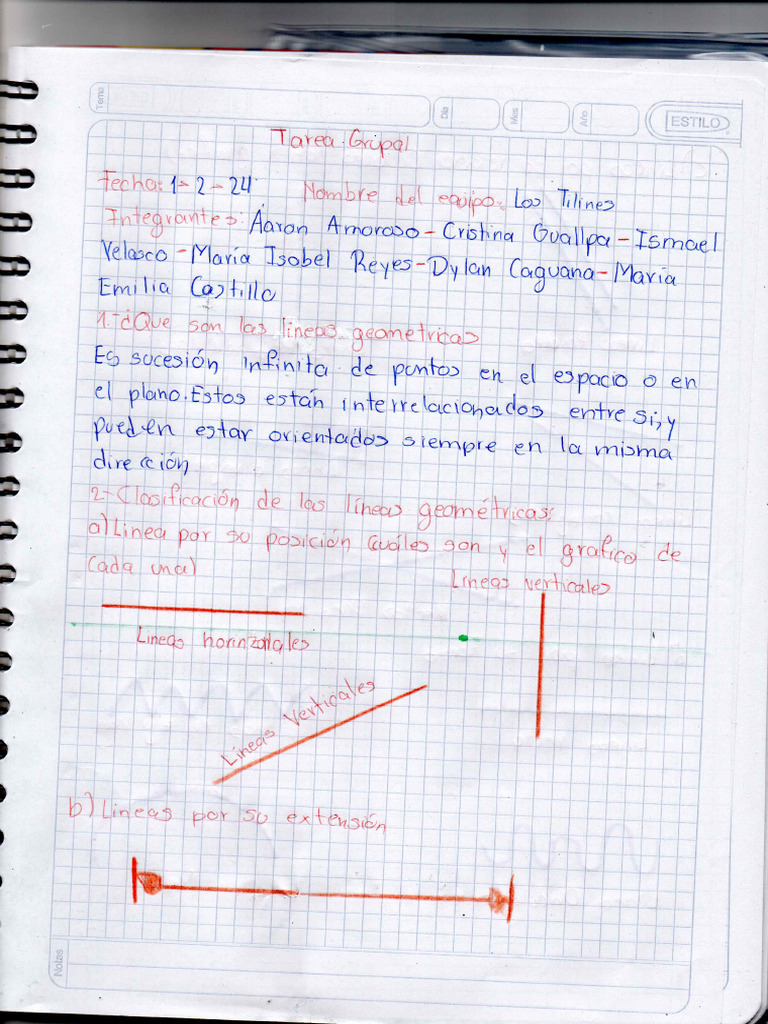 Tema
Día
Mes
Año
ESTILO
Tarea Gripal
Fecha: 1-2-24 Nombre del equipo: Los Tilines
Integrantes: Áaron Amoroso-Cristina Guallpa-Ismael
Velasco-María Isabel Reyes-Dylan Caguana-María
Emilia Castillo
1.-¿Que son las líneas geometricas
Es sucesión infinita de puntos en el espacio o en
el plano.Estos están interrelacionados entre si, y
pueden estar orientados siempre en la misma
dirección
2-Clasificación de las líneas geométricas:
a) Linea por su posición (cuáles son y el grafico de
cada una)
Lineas verticales
Lineas horinzontales
Líneas Verticales
b) Lineas por su extensión
Notas